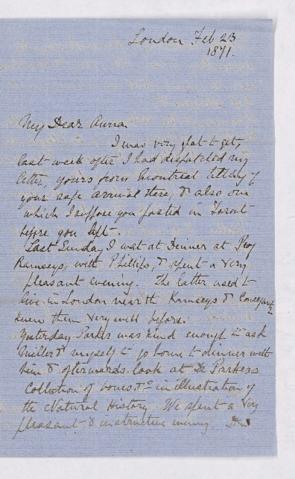 London Feb 23
1871.
My Dear Anna
I was very glad to get,
last week after I had dispatched my
letter, yours from Montreal telling of
your safe arrival there, & also one
which I suppose you posted in
before you left.
Last Sunday I was at Dinner at Prof
Ramsays with Phillips, & spent a very
pleasant evening. The latter used to
live in London near the Ramsays &
knew them very well before.
Yesterday Parker was kind enough to ask
& myself to go home to dinner with
him & afterwards look at Dr Parkers
Collection of bones &c in illustration of
the Natural History. We spent a very
pleasant & instructive evening.